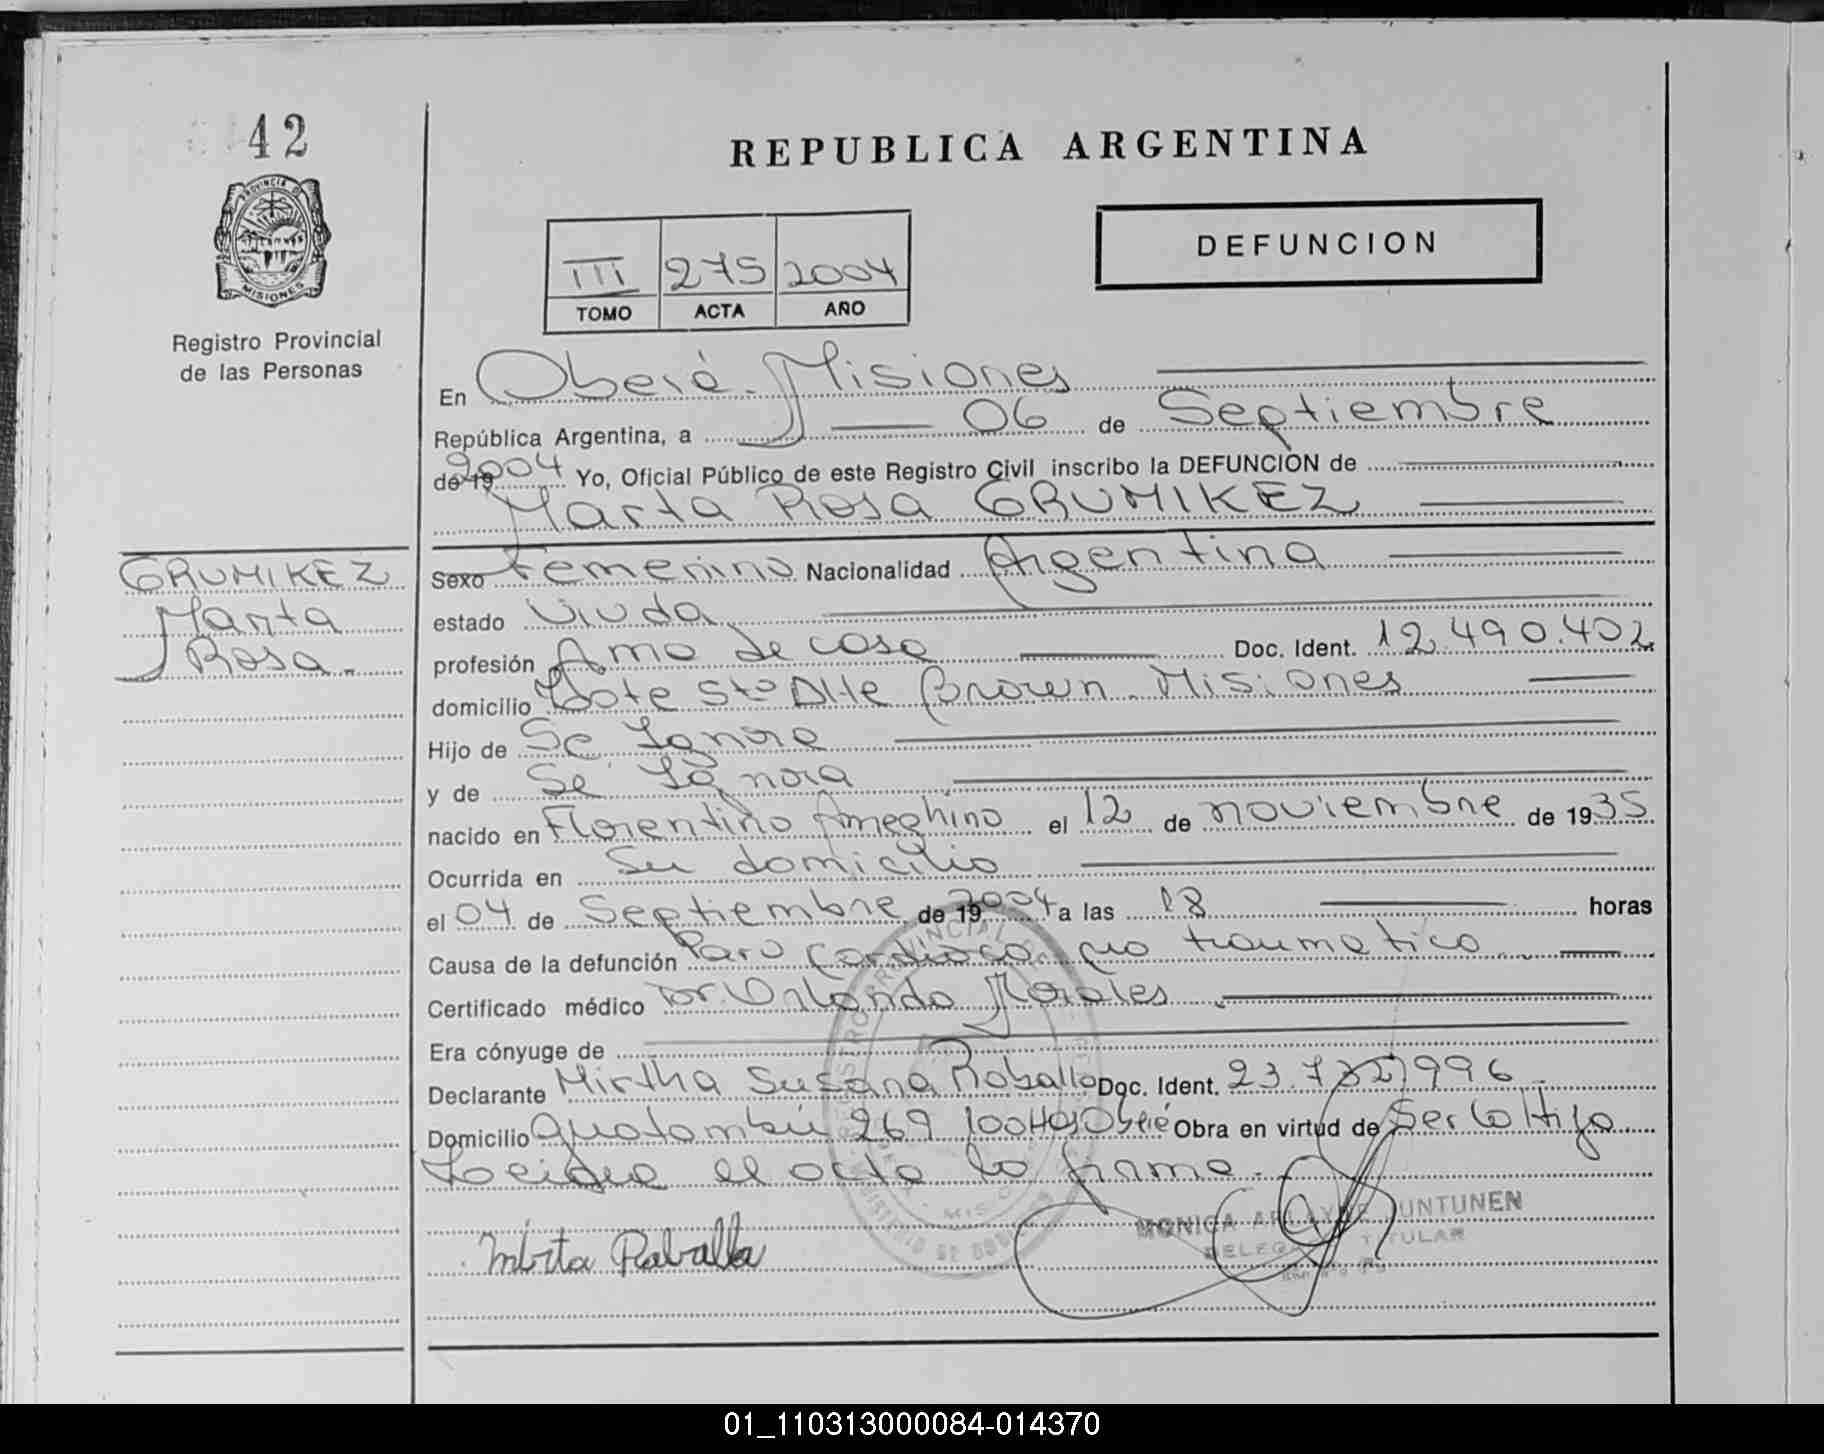 42
PROVINCIA D
MISIONES
Registro Provincial
de las Personas
REPUBLICA ARGENTINA
DEFUNCION
III 275 2004
TOMO ACTA AÑO
En Oberá - Misiones
República Argentina, a 06 de Septiembre
de 19 2004 Yo, Oficial Público de este Registro Civil inscribo la DEFUNCION de
Marta Rosa GRUMIKEZ
GRUMIKEZ
Marta
Rosa.-
Sexo Femenino Nacionalidad Argentina
estado Viuda
profesión Ama de casa Doc. Ident. 12.490.402
domicilio Lote Brown - Misiones
Hijo de Se Ignora
y de Se Ignora
nacido en Florentino Ameghino el 12 de noviembre de 1935
Ocurrida en Su domicilio
el 04 de Septiembre de 19 2004 a las 18 horas
Causa de la defunción Paro Cardiaco no traumatico
Certificado médico Dr. Orlando Morales
Era cónyuge de
Declarante Mirtha Susana Roballo Doc. Ident. 23. 996
Domicilio Guatambú 269 100 Has Oberá Obra en virtud de Ser la Hija
Leida el acta la firma.-
Mirta Raballo
MONICA PUNTUNEN
TITULAR
01_110313000084-014370